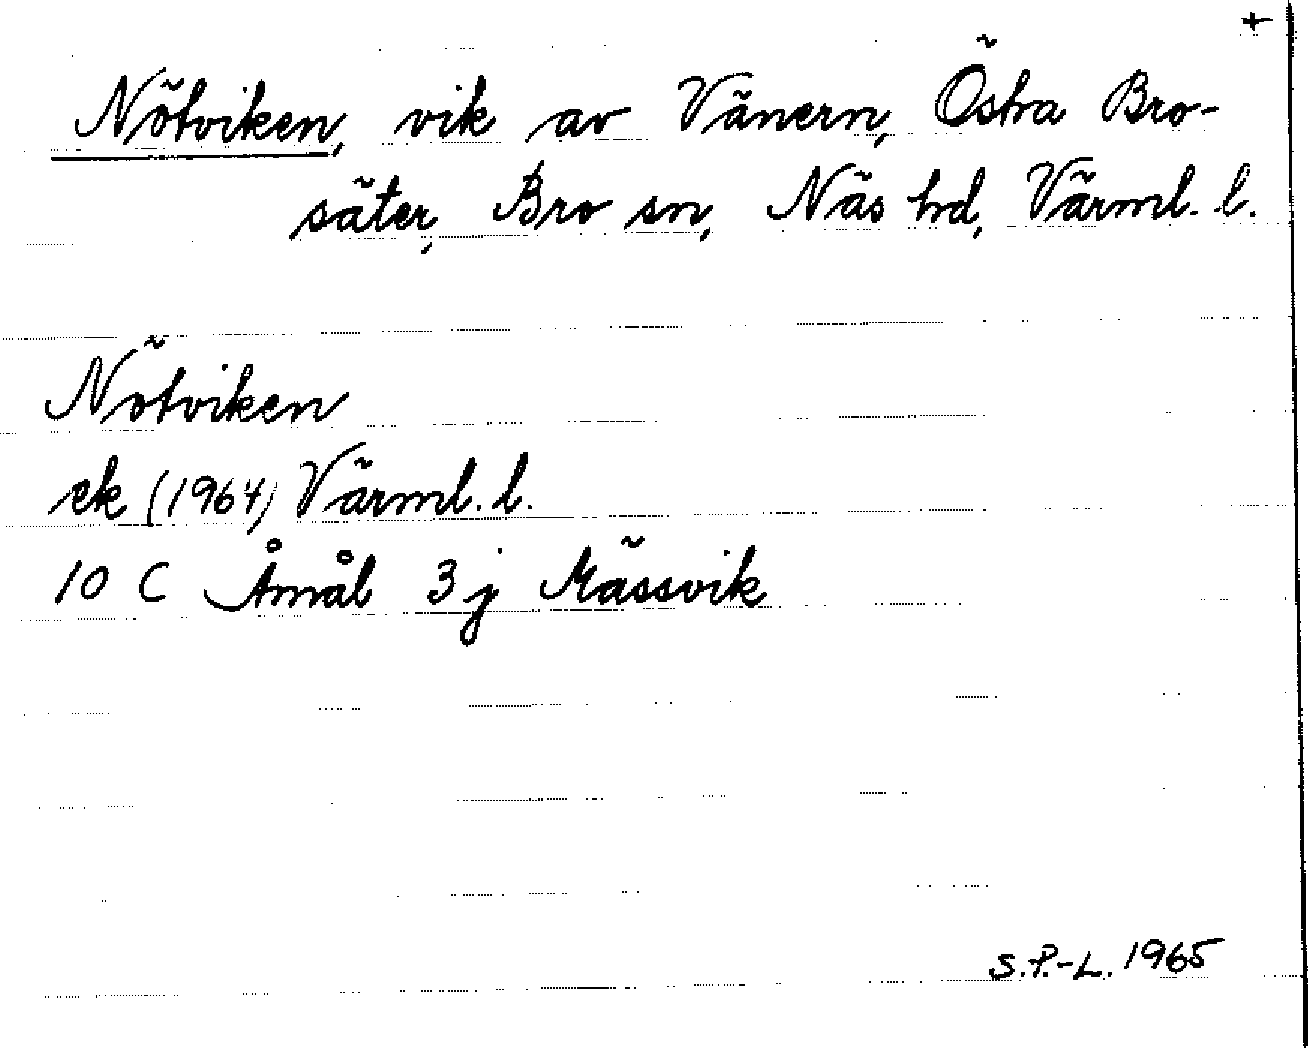 +
Nötviken, vik av Vänern, Östra Bro-
säter, Bro sn, Näs hd, Värml. l.
Nötviken
ek (1964) Värml. l.
10 C Åmål 3 j Mässvik
S.P.-L. 1965